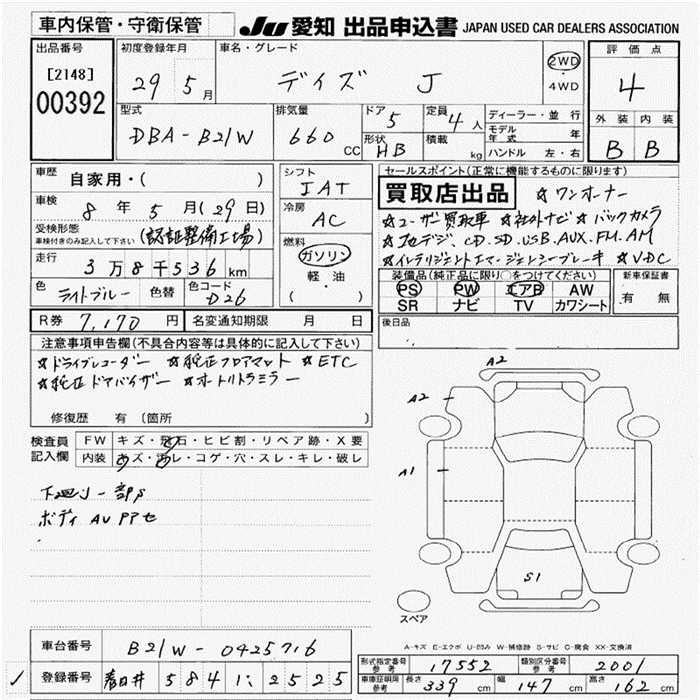 車内保管・守衛保管 JU 愛知 出品申込書 JAPAN USED CAR DEALERS ASSOCIATION
出品番号
[2148]
00392
初度登録年月
29年5月
車名・グレード
デイズ J
2WD
・
4WD
評価点
4
外装 内装
B B
型式
DBA-B21W
排気量
660 CC
ドア
5
形状
HB
定員
4人
積載
kg
ディーラー・並行
モデル年式 年
ハンドル 左・右
車歴
自家用・( )
車検
8年5月(29日)
受検形態
車検付きのみ記入して下さい
(認証整備工場)
走行
3万8千536km
色
ライトブルー
色替
色コード
D26
シフト
IAT
冷房
AC
燃料
ガソリン
・
軽・油
( )
セールスポイント(正常に機能するものに限ります)
買取店出品 ☆ワンオーナー
☆ユーザー買取車 ☆社外ナビ ☆バックカメラ
☆地デジ.CD.SD.USB.AUX.FM.AM
☆インテリジェントエマージェンシーブレーキ ☆VDC
装備品(純正品に限り○をつけてください)
PS PW エアB AW
SR ナビ TV カワシート
新車保証書
有 無
R券 7,170円 名変通知期限 月 日
後日品
注意事項申告欄(不具合内容等は具体的に記入して下さい)
☆ドライブレコーダー ☆純正フロアマット ☆ETC
☆純正ドアバイザー ☆オートリトラミラー
修復歴 有 (箇所
検査員記入欄
FW キズ・飛石・ヒビ割・リペア跡・X要
内装 キズ・汚レ・コゲ・穴・スレ・キレ・破レ
下廻り一部S
ボディAUPアセ
A2
A2
A1
S1
スペア
A-キズ E-エクボ U-凹み W-補修跡 S-サビ C-腐食 XX-交換済
車台番号 B21W-0425716
登録番号 春日井 584 い 2525
形式指定番号 参考 17552
類別区分番号 参考 2001
車庫証明用 参考 長さ 339cm 幅 147cm 高さ 162cm